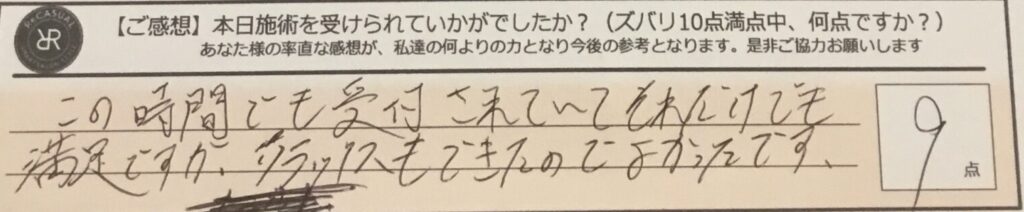 【ご感想】本日施術を受けられていかがでしたか？（ズバリ10点満点中、何点ですか？）
あなた様の率直な感想が、私達の何よりの力となり今後の参考となります。是非ご協力お願いします
この時間でも受付されていてそれだけでも
満足ですが、リラックスもできたのでよかったです、
9
点